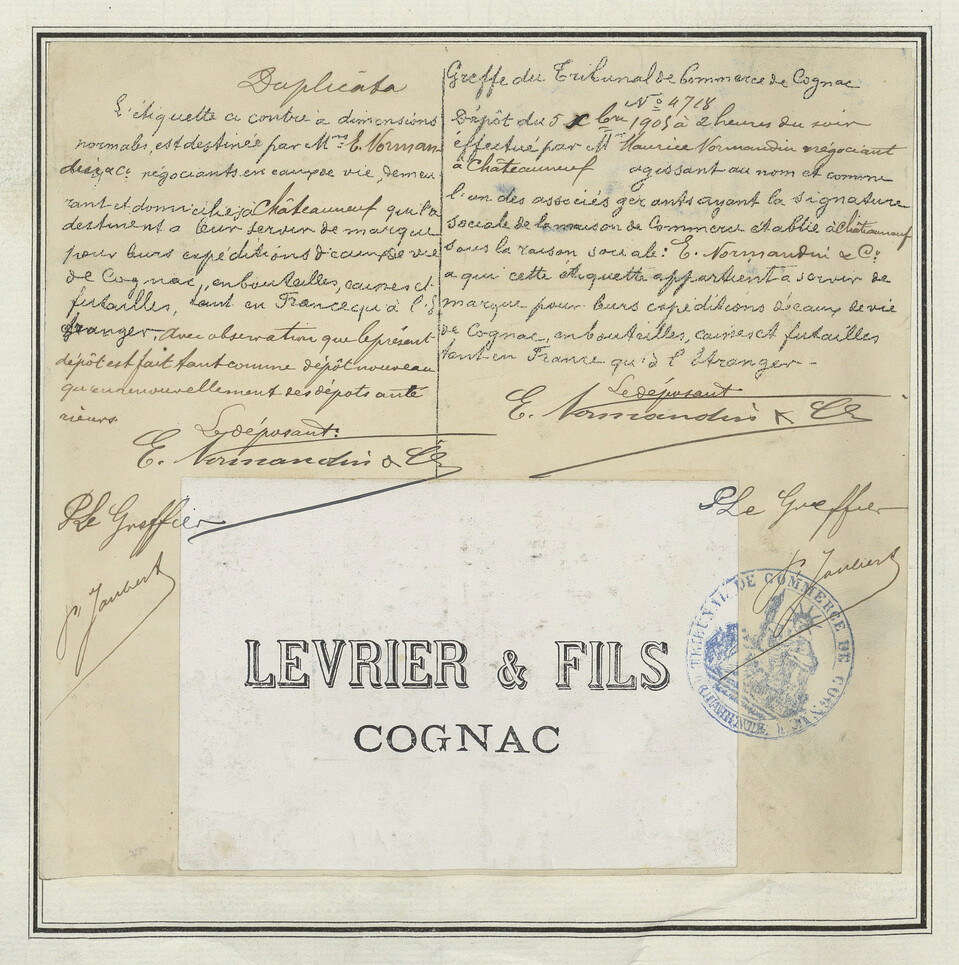 Duplicata
L'étiquette ci contre à dimensions
normales, est destinée par Mrs E. Norman-
din & Co négociants en eaux de vie, demeu
rant et domiciliés à Châteauneuf qui la
destinent à leur servir de marque
pour leurs expéditions d'eaux de vie
de Cognac, en bouteilles, caisses et
futailles, tant en France qu'à l'é
tranger. Avec observation que le présent
dépôt est fait tant comme dépôt nouveau
qu'en renouvellement des dépots anté
rieurs.
Le déposant:
E. Normandin & Co
P Le Greffier
P. Jaubert
Greffe du Tribunal de Commerce de Cognac
No 4718
Dépôt du 5 Xbre 1905 à 2 heures du soir
éffectué par Mr Maurice Normandin négociant
à Châteauneuf agissant au nom et comme
l'un des associés gérants ayant la signature
sociale de la maison de Commerce établie à Châteauneuf
sous la raison sociale: E. Normandin & Co.
à qui cette étiquette appartient à servir de
marque pour leurs expéditions d'eaux de vie
de Cognac, en bouteilles, caisses et futailles
tant en France qu'à l'étranger -
Le déposant
E. Normandin & Co
P Le Greffier
P. Jaubert
TRIBUNAL DE COMMERCE DE COGNAC
LEVRIER & FILS
COGNAC